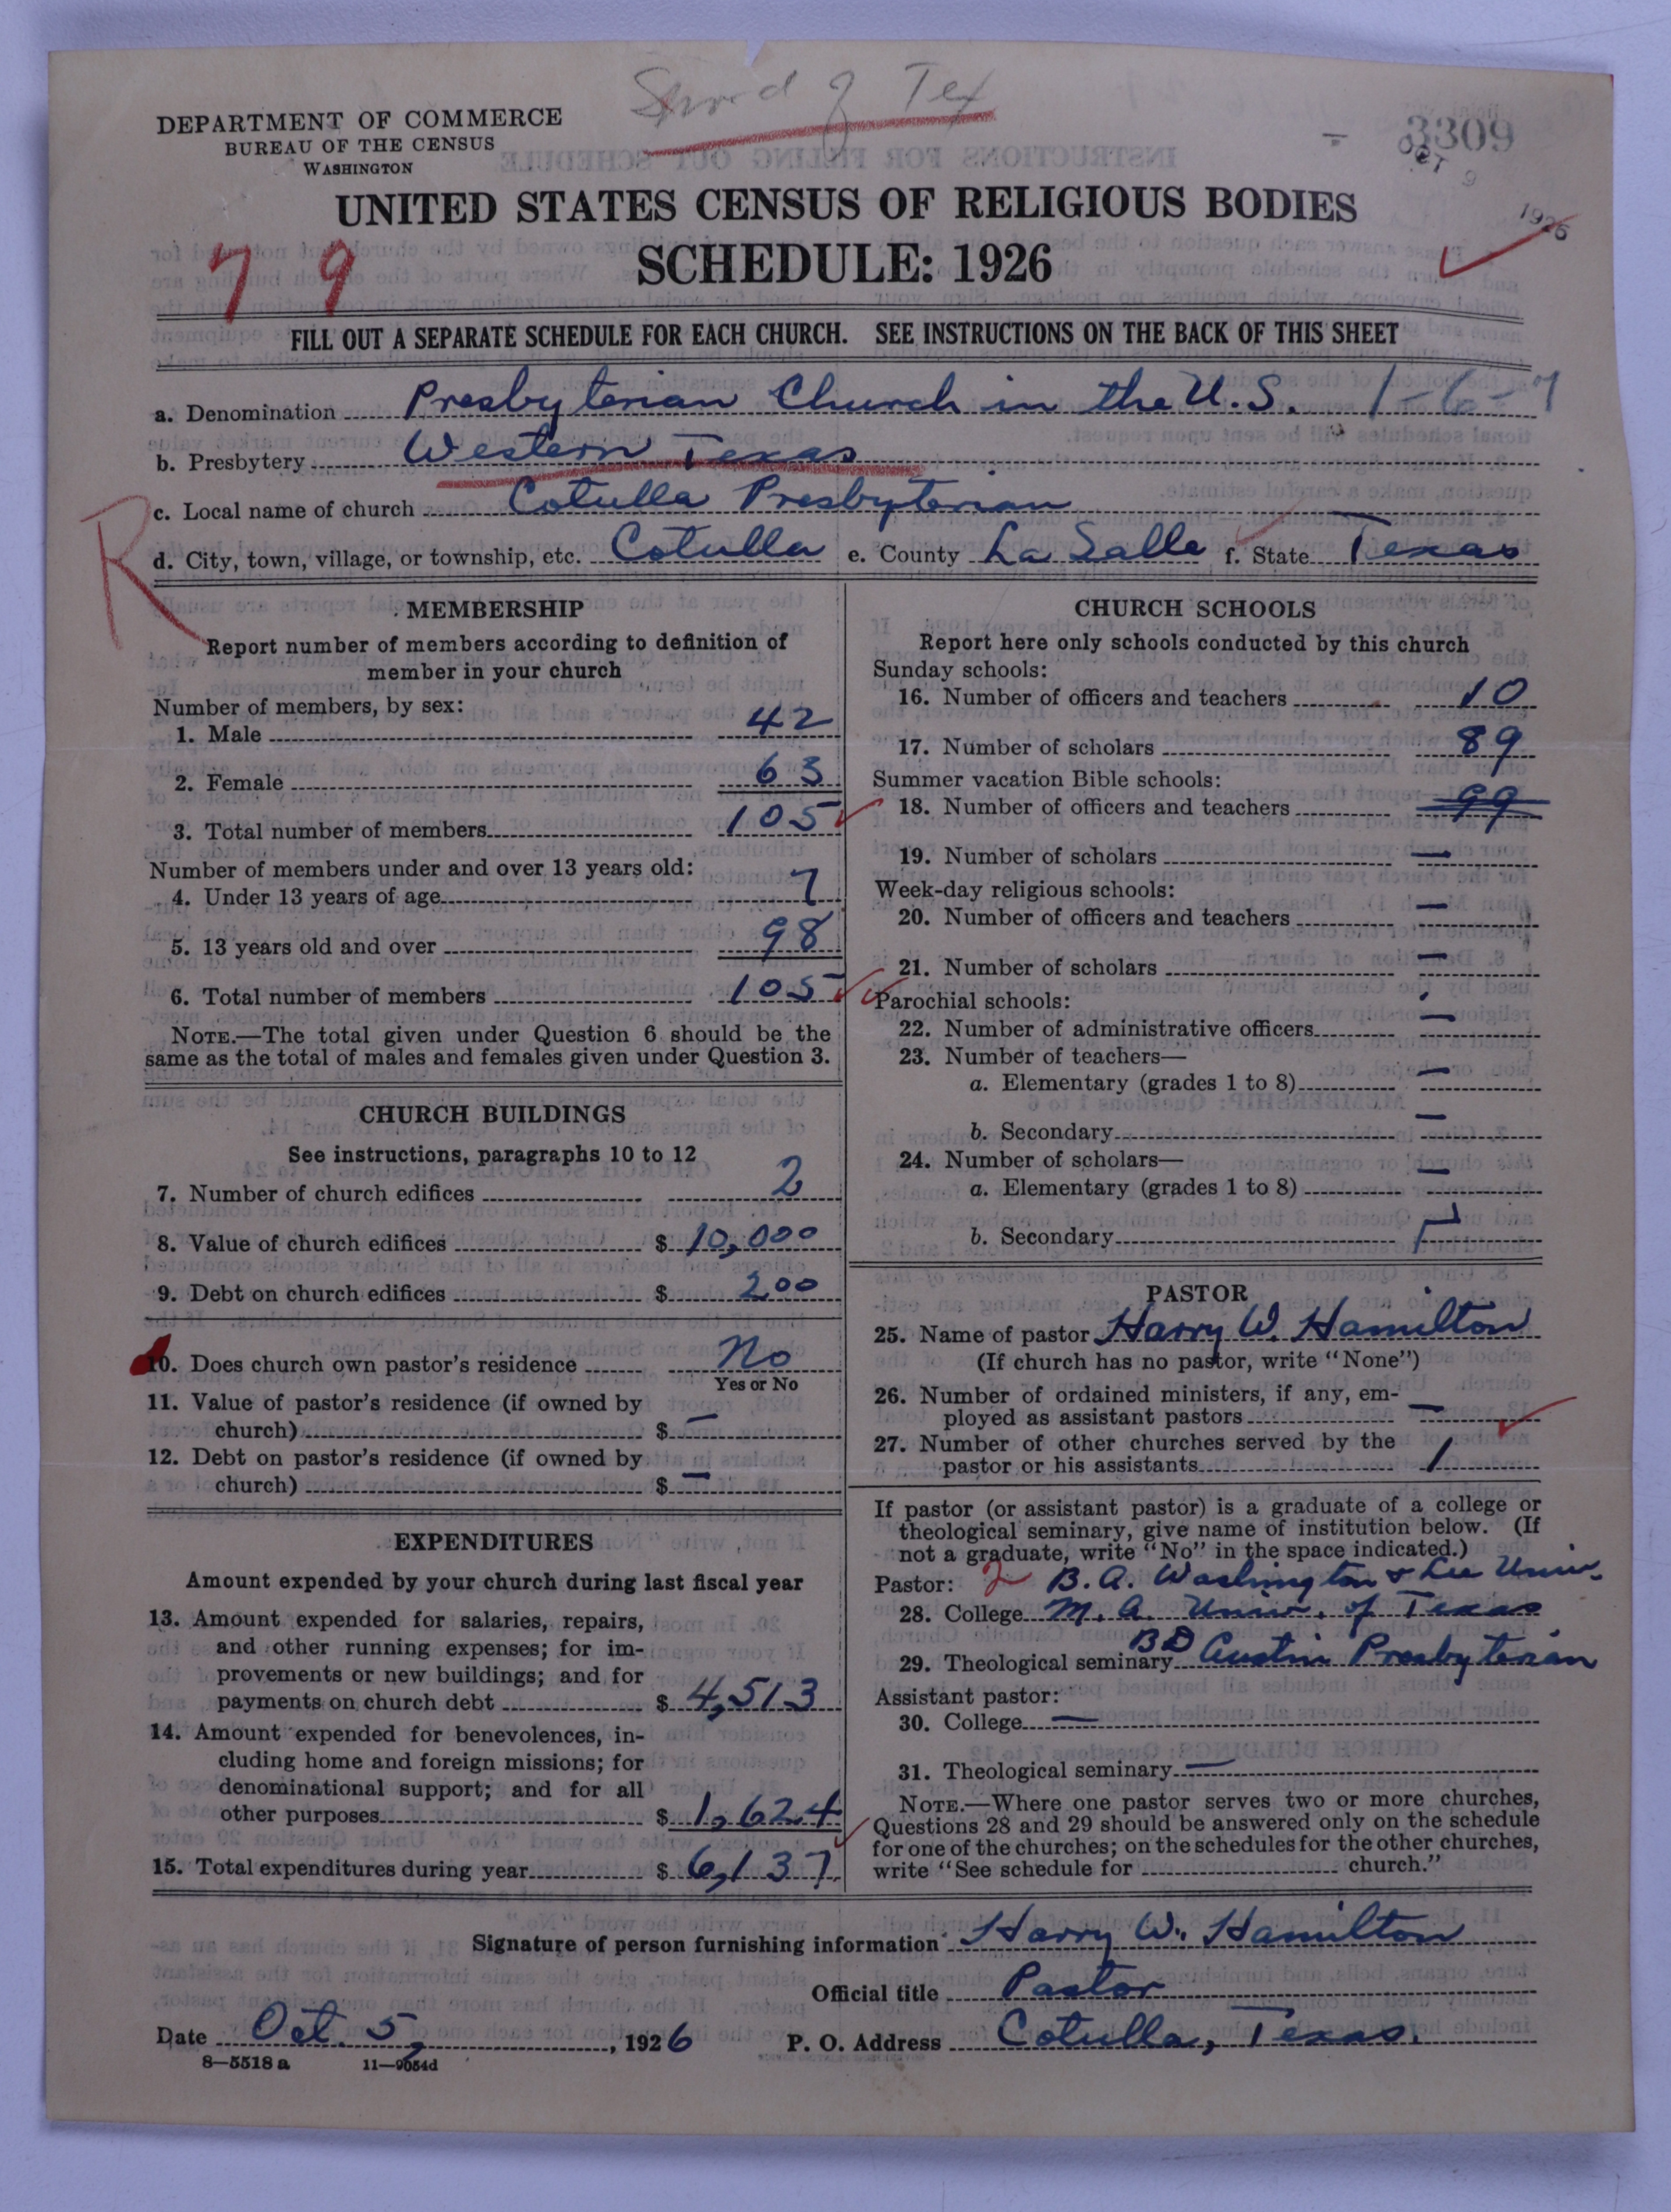 Synod of Tex
DEPARTMENT OF COMMERCE
BUREAU OF THE CENSUS
WASHINGTON
3309
OCT 9 1926
UNITED STATES CENSUS OF RELIGIOUS BODIES
SCHEDULE: 1926
79
FILL OUT A SEPARATE SCHEDULE FOR EACH CHURCH. SEE INSTRUCTIONS ON THE BACK OF THIS SHEET
a. Denomination Presbyterian Church in the U.S. 1-6-7
b. Presbytery Western Texas
c. Local name of church Cotulla Presbyterian
R
d. City, town, village, or township, etc. Cotulla e. County La Salle f. State Texas
MEMBERSHIP
Report number of members according to definition of
member in your church
Number of members, by sex:
1. Male 42
2. Female 63
3. Total number of members 105
Number of members under and over 13 years old:
4. Under 13 years of age 7
5. 13 years old and over 98
6. Total number of members 105
NOTE.—The total given under Question 6 should be the
same as the total of males and females given under Question 3.
CHURCH BUILDINGS
See instructions, paragraphs 10 to 12
7. Number of church edifices 2
8. Value of church edifices $ 10,000
9. Debt on church edifices $ 200
10. Does church own pastor's residence No
Yes or No
11. Value of pastor's residence (if owned by
church) $ —
12. Debt on pastor's residence (if owned by
church) $ —
EXPENDITURES
Amount expended by your church during last fiscal year
13. Amount expended for salaries, repairs,
and other running expenses; for im-
provements or new buildings; and for
payments on church debt $ 4,513
14. Amount expended for benevolences, in-
cluding home and foreign missions; for
denominational support; and for all
other purposes $ 1,624
15. Total expenditures during year $ 6,137
CHURCH SCHOOLS
Report here only schools conducted by this church
Sunday schools:
16. Number of officers and teachers 10
17. Number of scholars 89
Summer vacation Bible schools:
18. Number of officers and teachers 99
19. Number of scholars —
Week-day religious schools:
20. Number of officers and teachers —
21. Number of scholars —
Parochial schools:
22. Number of administrative officers —
23. Number of teachers—
a. Elementary (grades 1 to 8) —
b. Secondary —
24. Number of scholars—
a. Elementary (grades 1 to 8) —
b. Secondary
PASTOR
25. Name of pastor Harry W. Hamilton
(If church has no pastor, write "None")
26. Number of ordained ministers, if any, em-
ployed as assistant pastors —
27. Number of other churches served by the
pastor or his assistants 1
If pastor (or assistant pastor) is a graduate of a college or
theological seminary, give name of institution below. (If
not a graduate, write "No" in the space indicated.)
Pastor: 2 B.A. Washington & Lee Univ.
28. College M.A. Univ. of Texas
29. Theological seminary BD Austin Presbyterian
Assistant pastor:
30. College —
31. Theological seminary —
NOTE.—Where one pastor serves two or more churches,
Questions 28 and 29 should be answered only on the schedule
for one of the churches; on the schedules for the other churches,
write "See schedule for church."
Signature of person furnishing information Harry W. Hamilton
Official title Pastor
Date Oct. 5, 1926 P. O. Address Cotulla, Texas.
8—5518 a 11—9054d